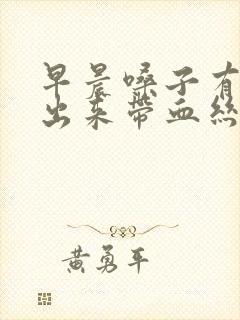 早晨嗓子有
出来带血丝
黄勇平